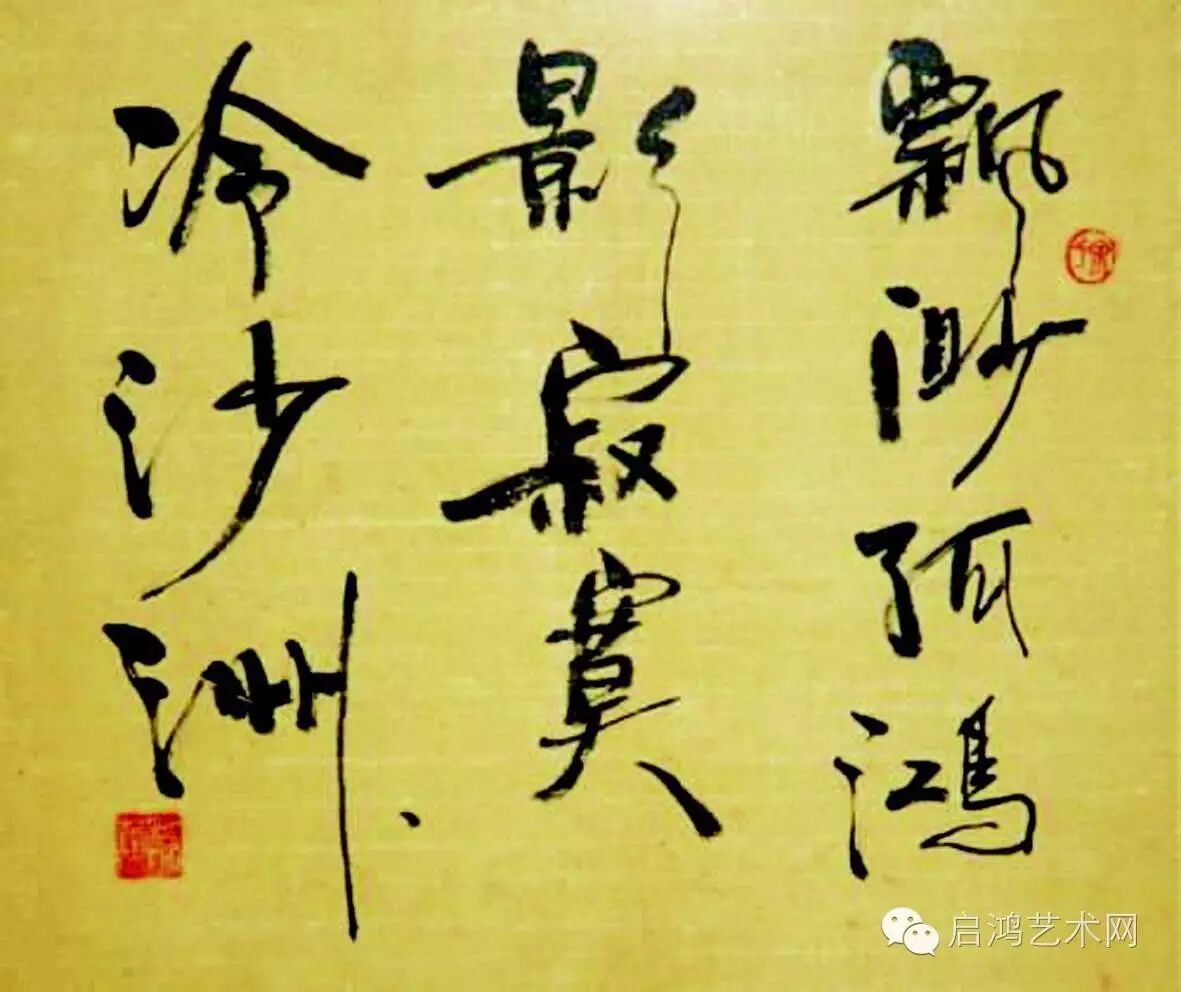 飘渺孤鸿
影寂寞
冷沙洲
启鸿艺术网